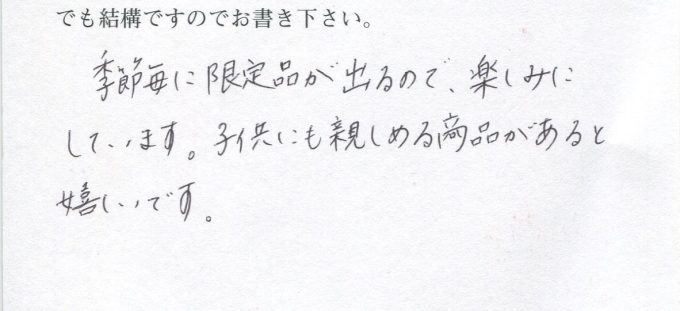 でも結構ですのでお書き下さい。
季節毎に限定品が出るので、楽しみに
しています。子供にも親しめる商品があると
嬉しいです。